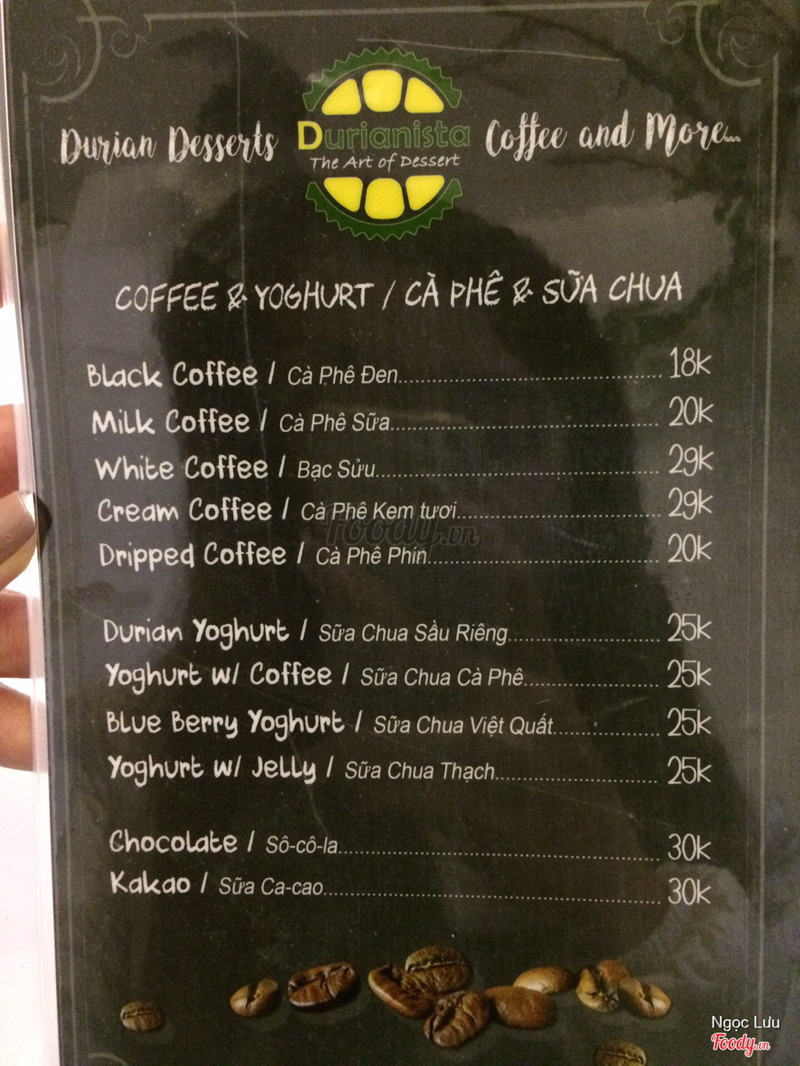 Durian Desserts Durianista Coffee and More...
The Art of Dessert
COFFEE & YOGHURT / CÀ PHÊ & SỮA CHUA
Black Coffee / Cà Phê Đen 18k
Milk Coffee / Cà Phê Sữa 20k
White Coffee / Bạc Sửu 29k
Cream Coffee / Cà Phê Kem tươi 29k
Foody.vn
Dripped Coffee / Cà Phê Phin 20k
Durian Yoghurt / Sữa Chua Sầu Riêng 25k
Yoghurt w/ Coffee / Sữa Chua Cà Phê 25k
Blue Berry Yoghurt / Sữa Chua Việt Quất 25k
Yoghurt w/ Jelly / Sữa Chua Thạch 25k
Chocolate / Sô-cô-la 30k
Kakao / Sữa Ca-cao 30k
Ngọc Lưu
Foody.vn